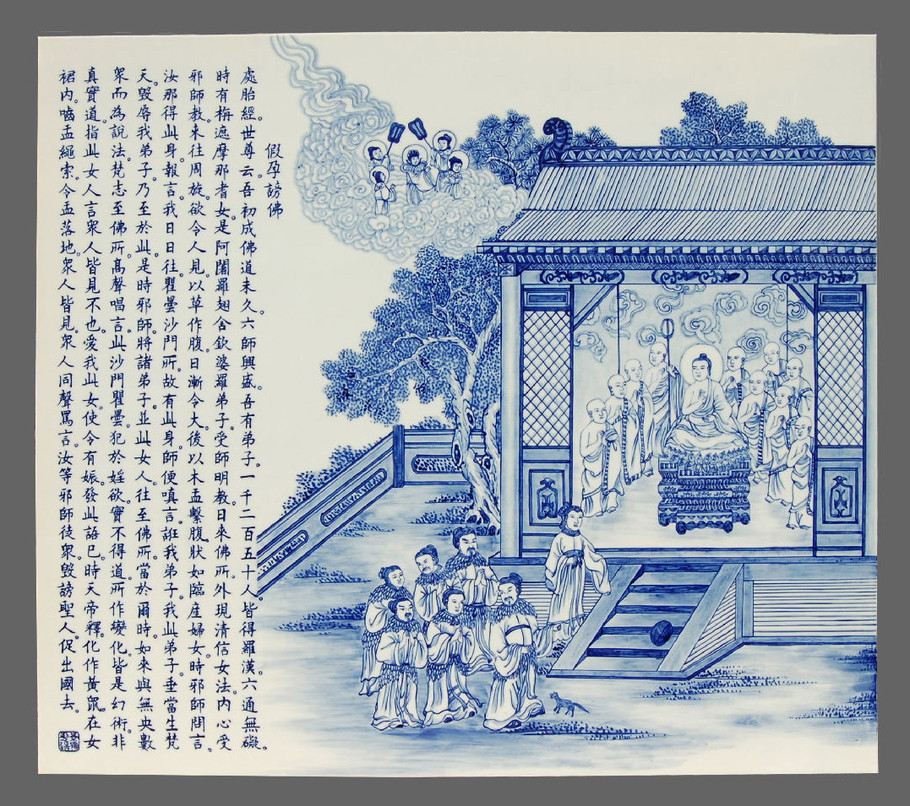 假孕謗佛
處胎經世尊云吾初成佛道未久六師興盛吾有弟子一千二百五十人皆得羅漢六通無礙
時有栴遮摩那耆女是阿闍羅翅舍欽婆羅弟子受師明教日來佛所外現清信女法內心受
邪師教來往周旋欲令人見以草作腹日漸令大後以木盂繫腹狀如臨產婦女時邪師問言
汝那得此身報言我日日往瞿曇沙門所故有此身師便嗔言誑我弟子我此弟子垂當生梵
天毀辱我弟子乃至於此是時邪師將諸弟子並此女人往至佛所當於爾時如來與無央數
眾而為說法梵志至佛所高聲唱言此沙門瞿曇犯於婬欲實不得道所作變化皆是幻術非
真實道指此女人言眾人皆見不也愛我此女使令有娠發此語已時天帝釋化作黃鼠在女
裙內嚙盂繩索令盂落地眾人皆見眾人同聲罵言汝等邪師徒眾毀謗聖人促出國去